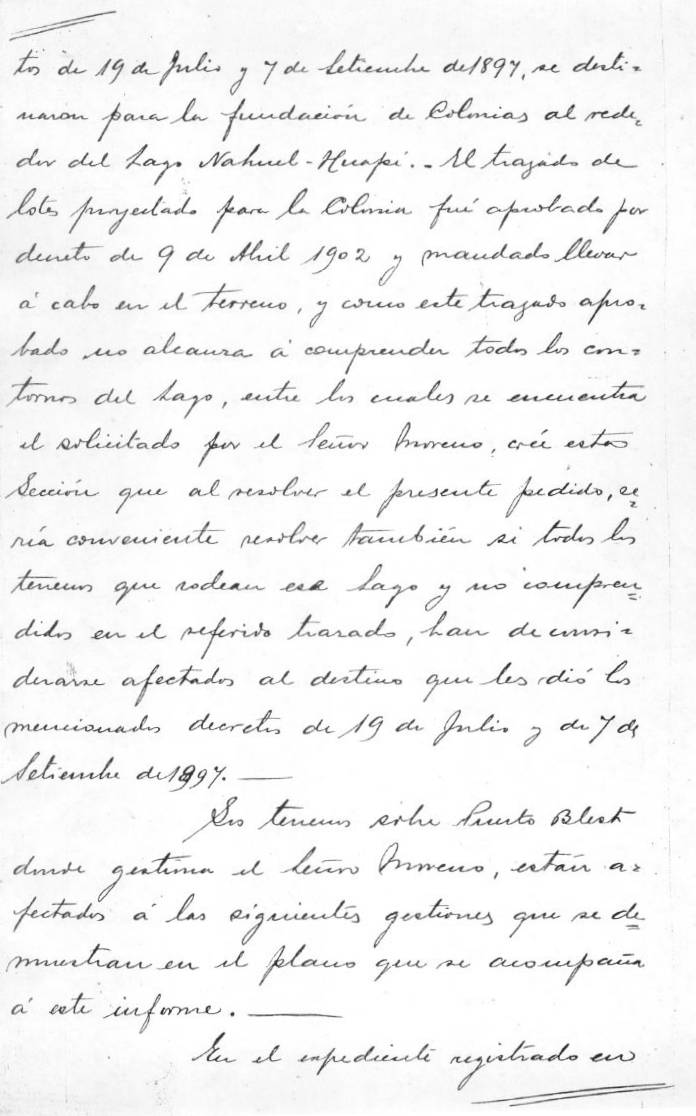 tos de 19 de Julio y 7 de Setiembre de 1897, se desti=
naron para la fundación de Colonias al rede=
dor del Lago Nahuel-Huapí.- El trazado de
lotes proyectado para la Colonia fué aprobado por
decreto de 9 de Abril 1902 y mandado llevar
á cabo en el terreno, y como este trazado apro=
bado no alcanza á comprender todos los con=
tornos del Lago, entre los cuales se encuentra
el solicitado por el Señor Moreno, creé esta
Sección que al resolver el presente pedido, se=
ría conveniente resolver también si todos los
terrenos que rodean ese Lago y no compren=
didos en el referido trazado, han de consi=
derarse afectados al destino que les dió los
mencionados decretos de 19 de Julio y de 7 de
Setiembre de 1897. —
Los terrenos sobre Puerto Blest
donde gestiona el Señor Moreno, están a=
fectados á las siguientes gestiones que se de=
muestran en el plano que se acompaña
á este informe. —
En el expediente registrado en